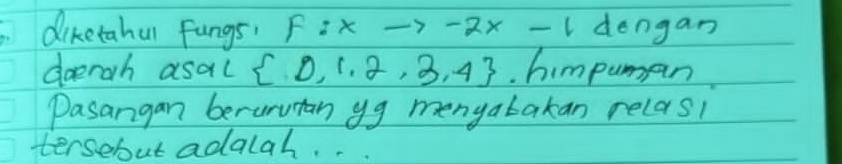 diketahui fungsi F : x -> -2x - 1 dengan
daerah asal { 0, 1, 2, 3, 4 }. himpunan
Pasangan berurutan yg menyatakan relasi
tersebut adalah...